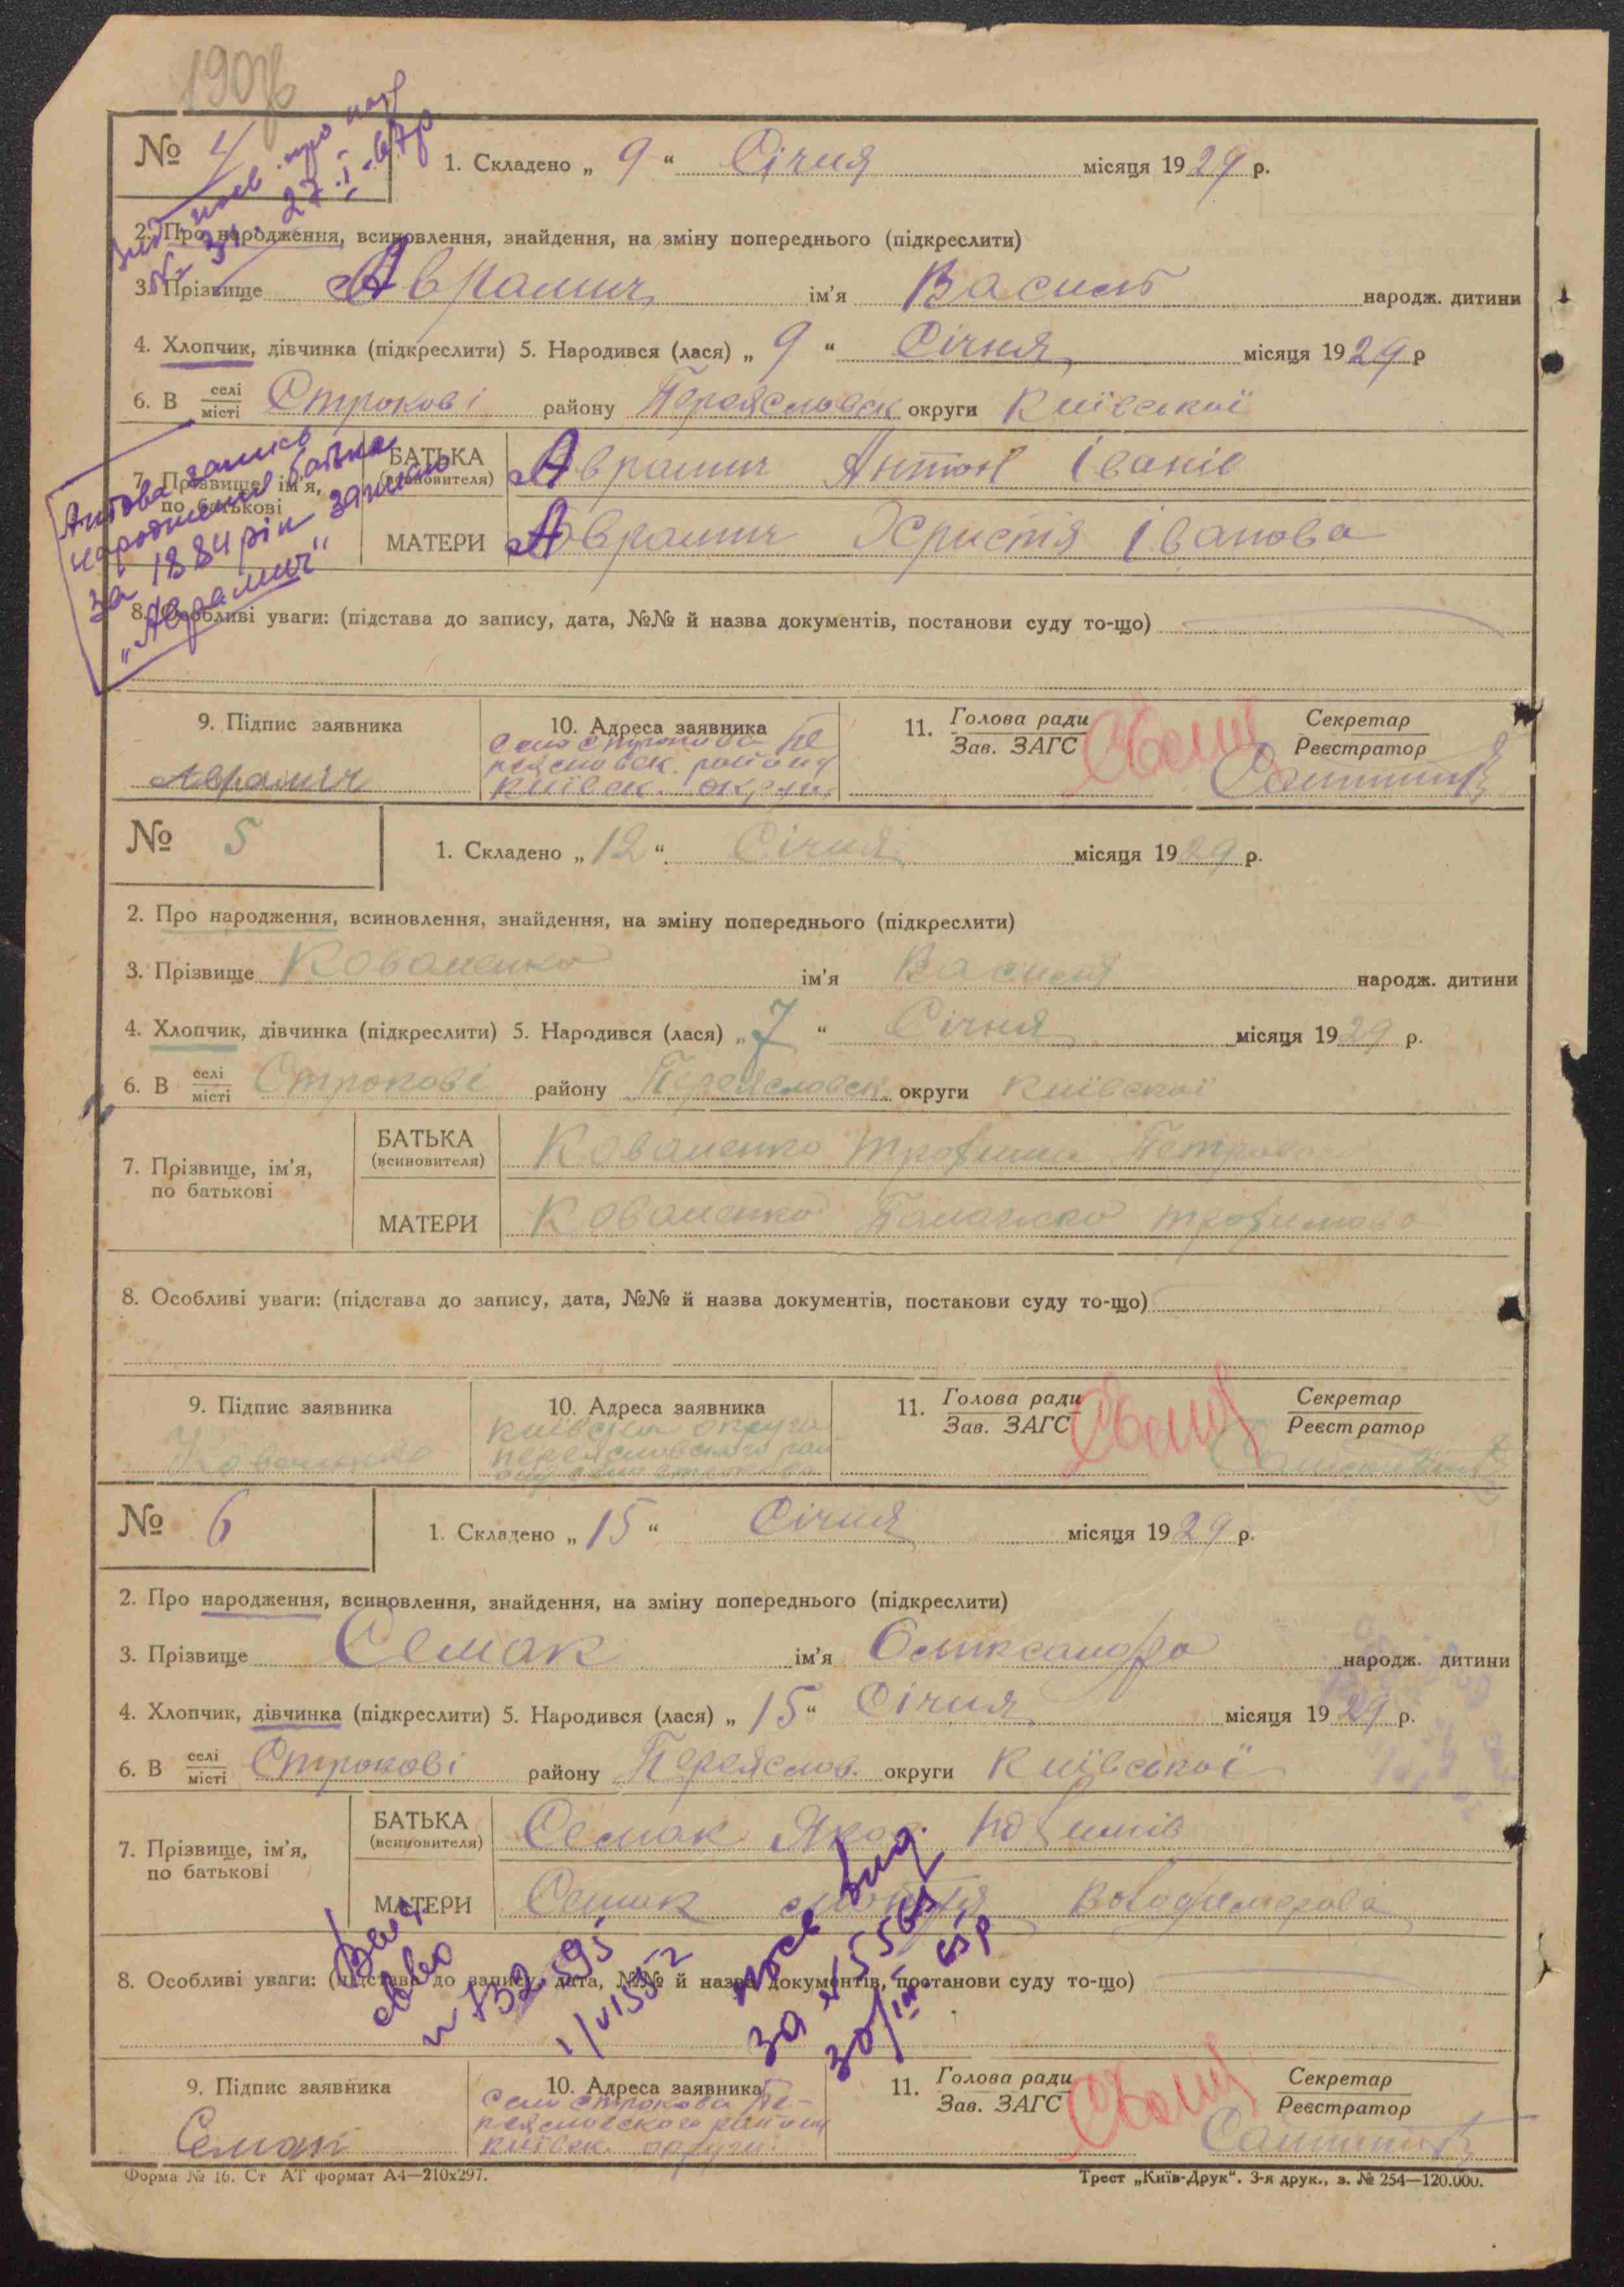 190зв
№ 4
1. Складено „ 9 “ Січня місяця 1929 р.
2. Про народження, всиновлення, знайдення, на зміну попереднього (підкреслити)
3. Прізвище Аврамич ім’я Василь народж. дитини
4. Хлопчик, дівчинка (підкреслити) 5. Народився (лася) „ 9 “ Січня місяця 1929 р
6. В селі місті Строкові району Переясловск округи Київської
7. Прізвище, ім’я, по батькові
БАТЬКА (всиновителя) Аврамич Антон Іванів
МАТЕРИ Аврамич Христя Іванова
Актова запись
народження батька
за 1884 рік записано
„Аврамич“
8. Особливі уваги: (підстава до запису, дата, №№ й назва документів, постанови суду то-що)
9. Підпис заявника
Аврамич
10. Адреса заявника
Село Строкова Пе
реясловск. района
Київск. округи
11. Голова ради
Зав. ЗАГС
Секретар
Реєстратор
№ 5
1. Складено „ 12 “ Січня місяця 1929 р.
2. Про народження, всиновлення, знайдення, на зміну попереднього (підкреслити)
3. Прізвище Коваленко ім’я Василь народж. дитини
4. Хлопчик, дівчинка (підкреслити) 5. Народився (лася) „ 7 “ Січня місяця 1929 р.
6. В селі місті Строкові району Переясловск. округи Київської
7. Прізвище, ім’я, по батькові
БАТЬКА (всиновителя) Коваленко Трофим
МАТЕРИ Коваленко Палажка Трофимова
8. Особливі уваги: (підстава до запису, дата, №№ й назва документів, постанови суду то-що)
9. Підпис заявника
Коваленко
10. Адреса заявника
Київска округа
Переясловского рай
11. Голова ради
Зав. ЗАГС
Секретар
Реєстратор
№ 6
1. Складено „ 15 “ Січня місяця 1929 р.
2. Про народження, всиновлення, знайдення, на зміну попереднього (підкреслити)
3. Прізвище Семак ім’я Олександра народж. дитини
4. Хлопчик, дівчинка (підкреслити) 5. Народився (лася) „ 15 “ Січня місяця 1929 р.
6. В селі місті Строкові району Переяслов. округи Київської
7. Прізвище, ім’я, по батькові
БАТЬКА (всиновителя) Семак Юхимів
МАТЕРИ Семак Володимерова
8. Особливі уваги: (підстава до запису, дата, №№ й назва документів, постанови суду то-що)
9. Підпис заявника
Семак
10. Адреса заявника
Село Строкова Пе-
реясловского района
Київск. округи
11. Голова ради
Зав. ЗАГС
Секретар
Реєстратор
Форма № 16. Ст АТ формат А4—210х297.
Трест „Київ-Друк“. 3-я друк., з. № 254—120.000.